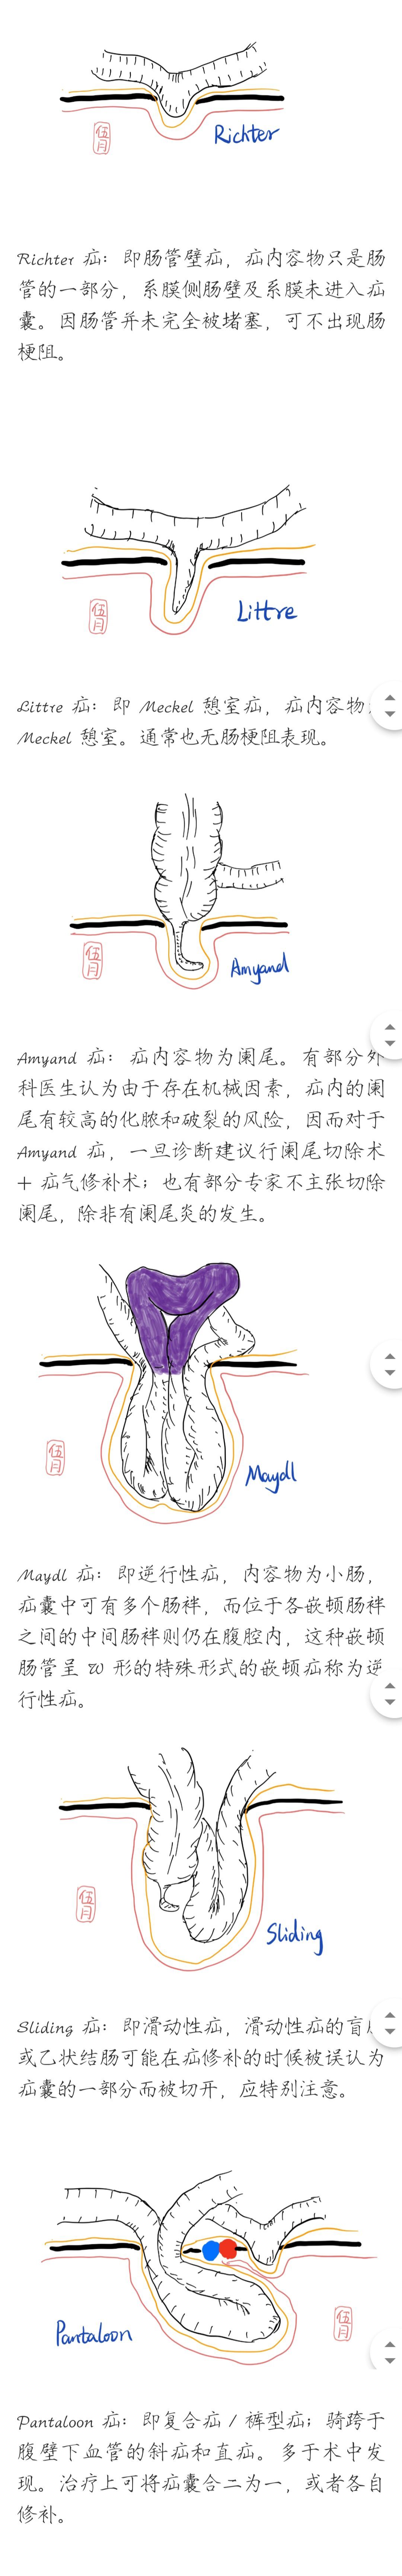 伍月
Richter
Richter 疝：即肠管壁疝，疝内容物只是肠
管的一部分，系膜侧肠壁及系膜未进入疝
囊。因肠管并未完全被堵塞，可不出现肠
梗阻。
伍月
Littre
Littre 疝：即 Meckel 憩室疝，疝内容物
Meckel 憩室。通常也无肠梗阻表现。
伍月
Amyand
Amyand 疝：疝内容物为阑尾。有部分外
科医生认为由于存在机械因素，疝内的阑
尾有较高的化脓和破裂的风险，因而对于
Amyand 疝，一旦诊断建议行阑尾切除术
+ 疝气修补术；也有部分专家不主张切除
阑尾，除非有阑尾炎的发生。
伍月
Maydl
Maydl 疝：即逆行性疝，内容物为小肠，
疝囊中可有多个肠袢，而位于各嵌顿肠袢
之间的中间肠袢则仍在腹腔内，这种嵌顿
肠管呈 W 形的特殊形式的嵌顿疝称为逆
行性疝。
伍月
Sliding
Sliding 疝：即滑动性疝，滑动性疝的盲
或乙状结肠可能在疝修补的时候被误认为
疝囊的一部分而被切开，应特别注意。
Pantaloon
伍月
Pantaloon 疝：即复合疝 / 裤型疝；骑跨于
腹壁下血管的斜疝和直疝。多于术中发
现。治疗上可将疝囊合二为一，或者各自
修补。